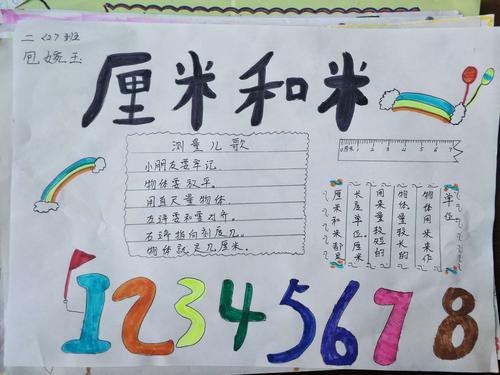 二(2)班
厘米和米
测量儿歌
小朋友要牢记.
物体要放平.
用直尺量物体.
左端要和零对齐.
右端指向刻度几.
物体就是几厘米.
0厘米 1 2 3 4 5 6 7
厘米和米都是
长度单位.厘米
用来量较短的
物体.量较长的
物体用米来作
单位.
1 2 3 4 5 6 7 8